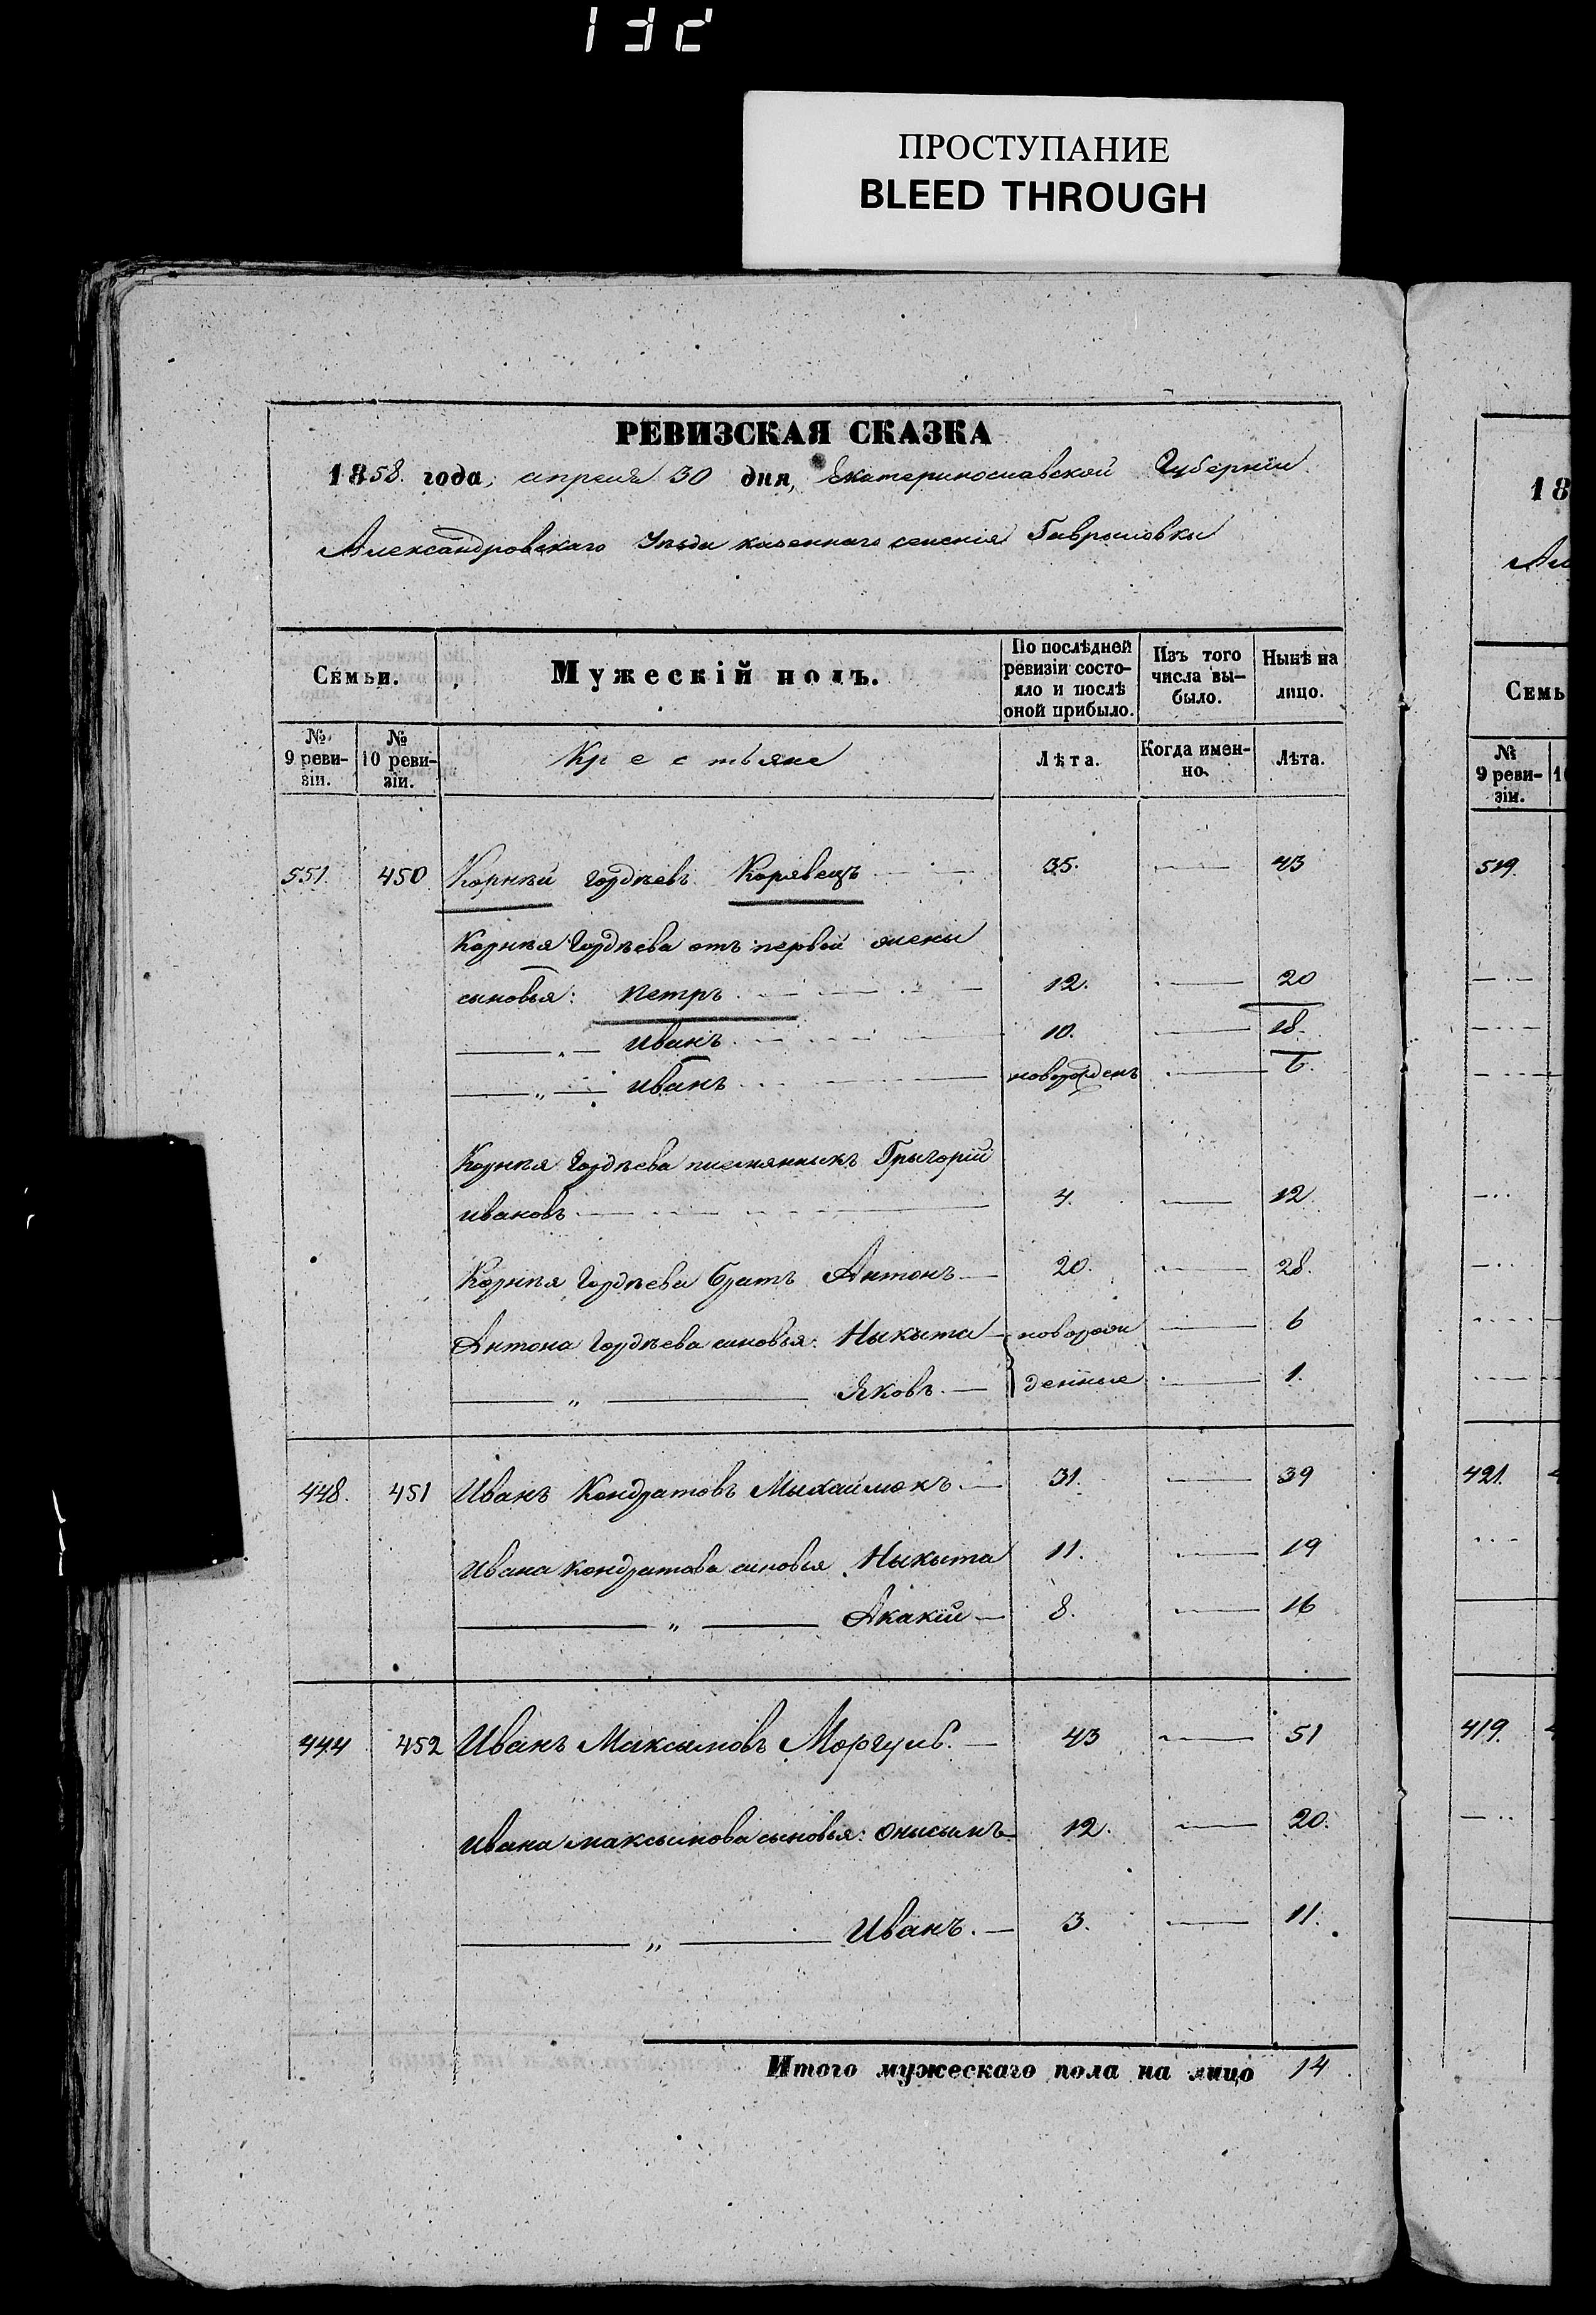 132
ПРОСТУПАНИЕ
BLEED THROUGH
РЕВИЗСКАЯ СКАЗКА
1858 года, апреля 30 дня, Екатеринославской Губернiи
Александровскаго Уѣзда казеннаго селенiя Гавриловки
Семьи. Мужескiй полъ. По послѣдней ревизiи состояло и послѣ оной прибыло. Изъ того числа выбыло. Нынѣ на лицо.
№ 9 ревизiи. № 10 ревизiи. Крестьяне Лѣта. Когда именно. Лѣта.
551. 450 Корнѣй Гордѣевъ Корявецъ 35. 43
Корнѣя Гордѣева отъ первой жены
сыновья: Петръ 12. 20
„ Иванъ 10. 18.
„ Иванъ новорожденъ 6.
Корнѣя Гордѣева племянныкъ Грыгорiй
Ивановъ 4. 12
Корнѣя Гордѣева братъ Антонъ 20. 28.
Антона Гордѣева сыновья: Ныкыта новорож 6
„ Яковъ. денные 1.
448. 451 Иванъ Кондратовъ Мыхайлюкъ 31. 39
Ивана Кондратова сыновья Ныкыта 11. 19
„ Акакiй 8. 16
444 452 Иванъ Максымовъ Моргуль. 43 51
Ивана Максымова сыновья: Онысымъ 12. 20.
„ Иванъ. 3. 11.
Итого мужескаго пола на лицо 14
18
Ал
Семь
№ 9 ревизiи.
519.
421.
419.